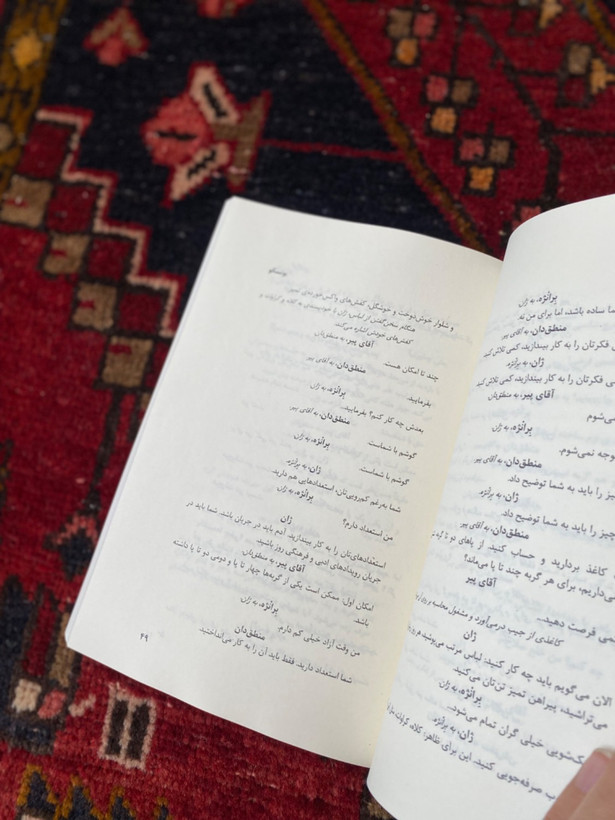 برانژه، به ژان
ما ساده باشد، اما برای من نه.
منطق‌دان، به آقای پیر
فکرتان را به کار بیندازید، کمی تلاش کنید
ژان، به برانژه
ی فکرتان را به کار بیندازید، کمی تلاش کنید
آقای پیر، به منطق‌دان
می‌شوم
برانژه، به ژان
وجه نمی‌شوم.
منطق‌دان، به آقای پیر
یز را باید به شما توضیح داد.
ژان، به برانژه
چیز را باید به شما توضیح داد.
منطق‌دان، به آقای پیر
کاغذ بردارید و حساب کنید. از پاهای دو تا گربه
ی‌داریم، برای هر گربه چند تا پا می‌ماند؟
آقای پیر
می فرصت دهید...
کاغذی از جیب درمی‌آورد و مشغول محاسبه
ژان
الان می‌گویم باید چه کار کنید: لباس مرتب می‌پوشید
می‌تراشید، پیراهن تمیز تن‌تان می‌کنید
برانژه، به ژان
کشویی خیلی گران تمام می‌شود.
ژان، به برانژه
ب صرفه‌جویی کنید. این برای ظاهر: کلاه، کراوات
و شلوار خوش‌دوخت و خوشگل، کفش‌های واکس‌خورده‌ی تمیز.
هنگام سخن‌گفتن از لباس، ژان با خودپسندی به کلاه و کراوات و
کفش‌های خودش اشاره می‌کند.
آقای پیر، به منطق‌دان
چند تا امکان هست.
منطق‌دان، به آقای پیر
بفرمایید.
برانژه، به ژان
بعدش چه کار کنم؟ بفرمایید.
منطق‌دان، به آقای پیر
گوشم با شماست.
برانژه، به ژان
گوشم با شماست.
ژان، به برانژه
شما به‌رغم کم‌رویی‌تان، استعدادهایی هم دارید.
برانژه، به ژان
من استعداد دارم؟
ژان
استعدادهای‌تان را به کار بیندازید. آدم باید در جریان باشد. شما باید در
جریان رویدادهای ادبی و فرهنگی روز باشید.
آقای پیر، به منطق‌دان
امکان اول: ممکن است یکی از گربه‌ها چهار تا پا و دومی دو تا پا داشته
باشد.
برانژه، به ژان
من وقت آزاد خیلی کم دارم.
منطق‌دان
شما استعداد دارید. فقط باید آن را به کار می‌انداختید.
۴۹